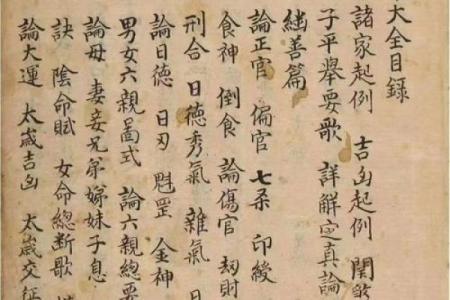 大全目録
諸家起例 吉凶起例 関煞
子平舉要歌 詳解定真論
継善篇
論正官 偏官 七杀 印綬
食神 倒食 論傷官 刼財
刑合 日德秀氣 雜氣 日
論日德 日刃 魁罡 金神
男女六親啚式 論六親總要
論母 妻妾兄弟嫦妹子息
訣 陰命賦 女命總断歌
論大運 太歲吉凶 太歲交